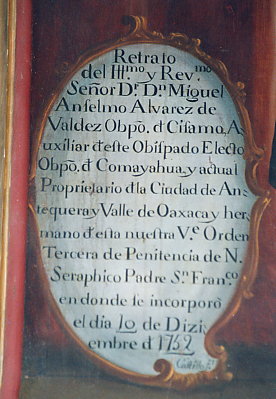 Retrato
del Ill.mo y Rev.mo
Señor D.r D.n Miguel
Anselmo Alvarez de
Valdez Obpõ. đ Cisamo, A-
uxiliar đ este Obispado Electo
Obpõ. đ Comayahua, y actual
Proprietario đ la Ciudad de An-
tequera y Valle de Oaxaca y her-
mano đ esta nuestra V.e Orden
Tercera de Penitencia de N.
Seraphico Padre S.n Fran.co
en donde se incorporó
el dia 10 de Dizi-
embre đ 1752